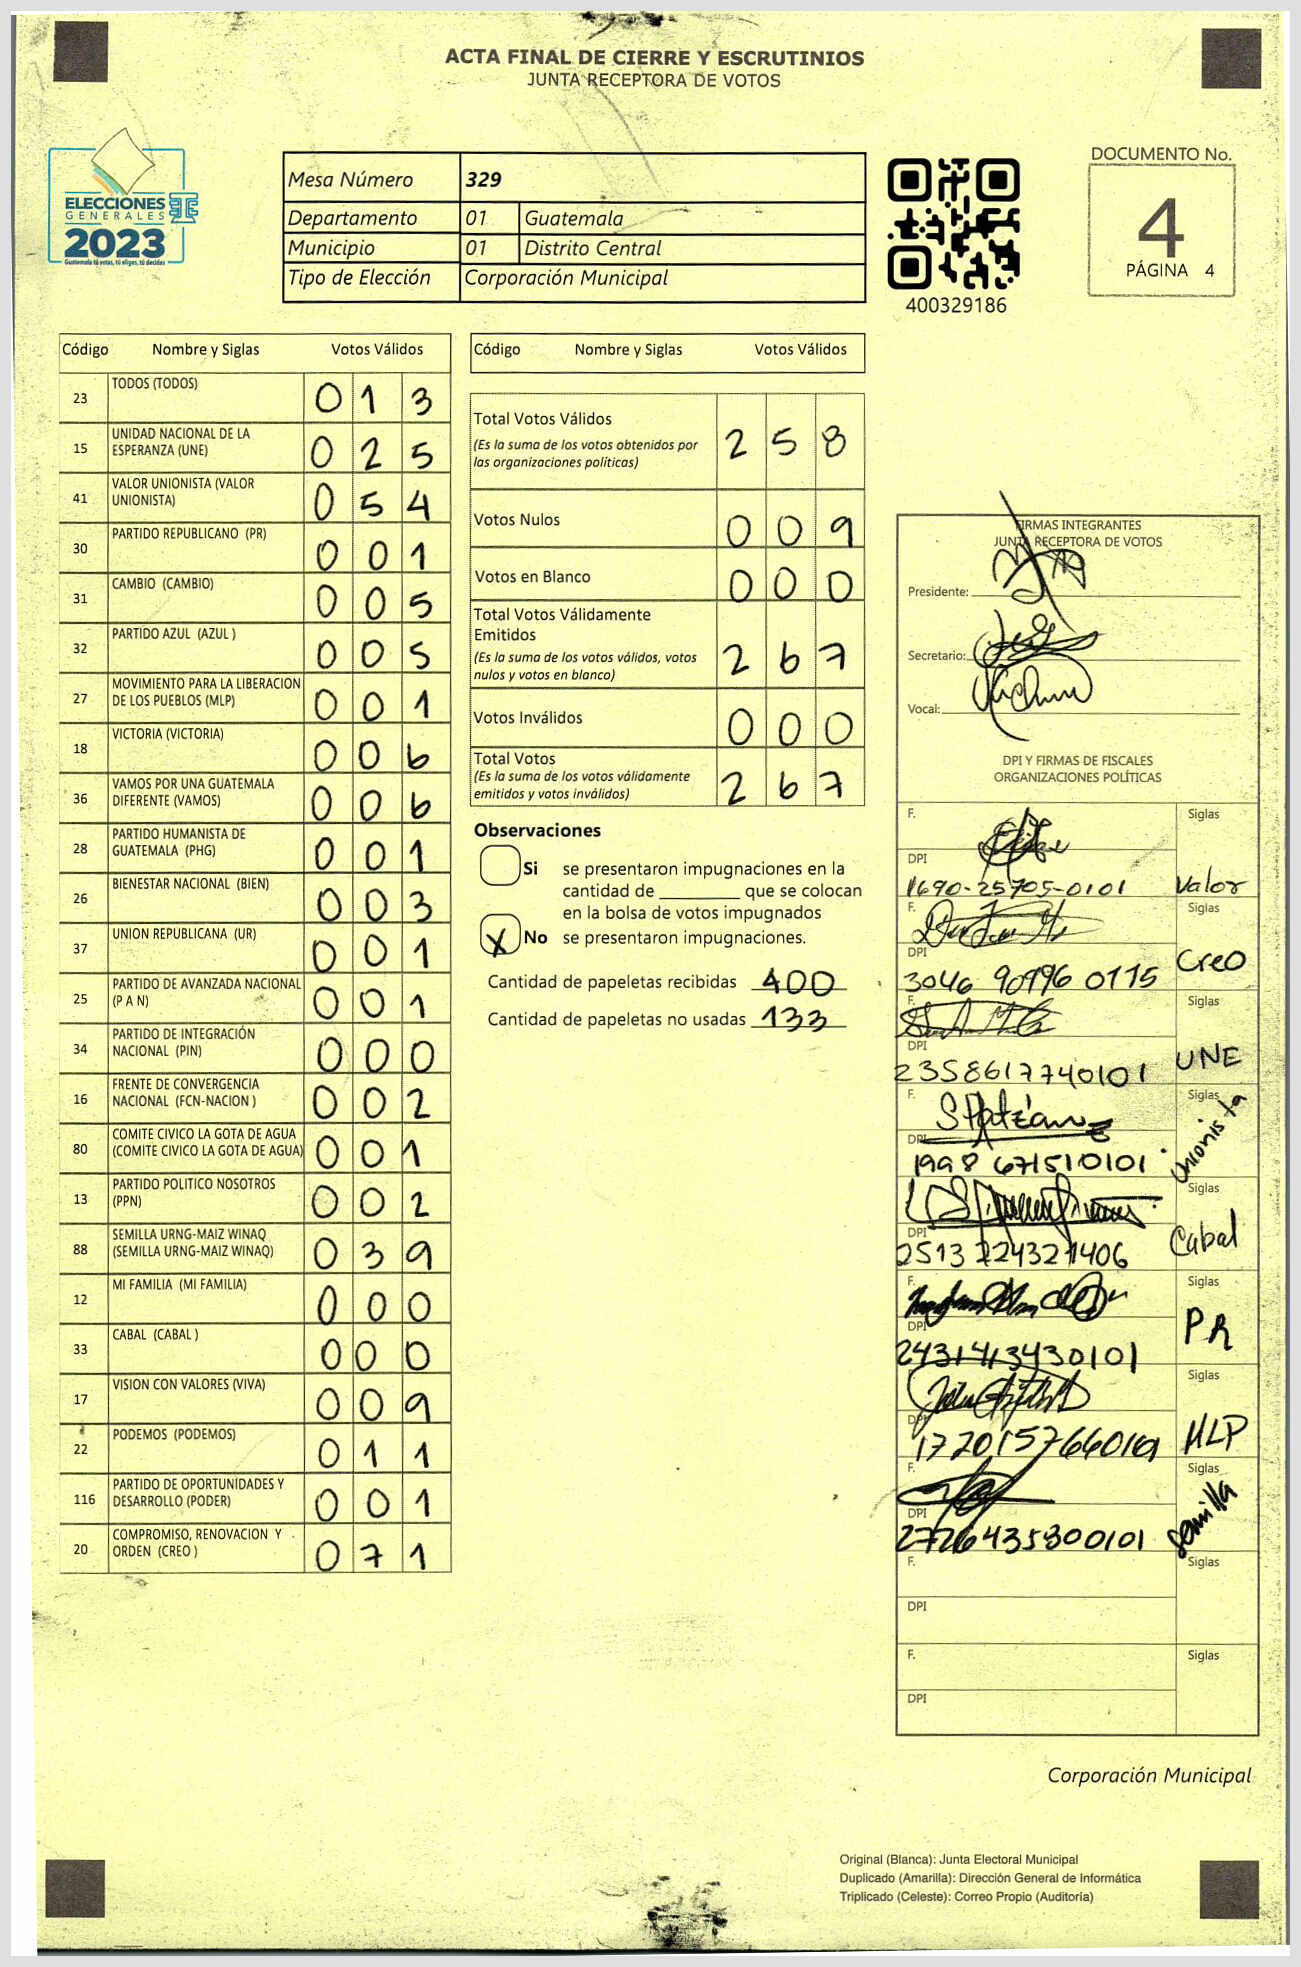 ACTA FINAL DE CIERRE Y ESCRUTINIOS
JUNTA RECEPTORA DE VOTOS
ELECCIONES
GENERALES
2023
Guatemala tú votas, tú eliges, tú decides
Mesa Número 329
Departamento 01 Guatemala
Municipio 01 Distrito Central
Tipo de Elección Corporación Municipal
400329186
DOCUMENTO No.
4
PÁGINA 4
Código Nombre y Siglas Votos Válidos
23 TODOS (TODOS) 0 1 3
15 UNIDAD NACIONAL DE LA
ESPERANZA (UNE) 0 2 5
41 VALOR UNIONISTA (VALOR
UNIONISTA) 0 5 4
30 PARTIDO REPUBLICANO (PR) 0 0 1
31 CAMBIO (CAMBIO) 0 0 5
32 PARTIDO AZUL (AZUL ) 0 0 5
27 MOVIMIENTO PARA LA LIBERACION
DE LOS PUEBLOS (MLP) 0 0 1
18 VICTORIA (VICTORIA) 0 0 6
36 VAMOS POR UNA GUATEMALA
DIFERENTE (VAMOS) 0 0 6
28 PARTIDO HUMANISTA DE
GUATEMALA (PHG) 0 0 1
26 BIENESTAR NACIONAL (BIEN) 0 0 3
37 UNION REPUBLICANA (UR) 0 0 1
25 PARTIDO DE AVANZADA NACIONAL
(P A N) 0 0 1
34 PARTIDO DE INTEGRACIÓN
NACIONAL (PIN) 0 0 0
16 FRENTE DE CONVERGENCIA
NACIONAL (FCN-NACION ) 0 0 2
80 COMITE CIVICO LA GOTA DE AGUA
(COMITE CIVICO LA GOTA DE AGUA) 0 0 1
13 PARTIDO POLITICO NOSOTROS
(PPN) 0 0 2
88 SEMILLA URNG-MAIZ WINAQ
(SEMILLA URNG-MAIZ WINAQ) 0 3 9
12 MI FAMILIA (MI FAMILIA) 0 0 0
33 CABAL (CABAL ) 0 0 0
17 VISION CON VALORES (VIVA) 0 0 9
22 PODEMOS (PODEMOS) 0 1 1
116 PARTIDO DE OPORTUNIDADES Y
DESARROLLO (PODER) 0 0 1
20 COMPROMISO, RENOVACION Y
ORDEN (CREO ) 0 7 1
Código Nombre y Siglas Votos Válidos
Total Votos Válidos 2 5 8
(Es la suma de los votos obtenidos por
las organizaciones políticas)
Votos Nulos 0 0 9
Votos en Blanco 0 0 0
Total Votos Válidamente
Emitidos
(Es la suma de los votos válidos, votos
nulos y votos en blanco) 2 6 7
Votos Inválidos 0 0 0
Total Votos
(Es la suma de los votos válidamente
emitidos y votos inválidos) 2 6 7
Observaciones
Si se presentaron impugnaciones en la
cantidad de ________ que se colocan
en la bolsa de votos impugnados
X No se presentaron impugnaciones.
Cantidad de papeletas recibidas 400
Cantidad de papeletas no usadas 133
FIRMAS INTEGRANTES
JUNTA RECEPTORA DE VOTOS
Presidente:
Secretario:
Vocal:
DPI Y FIRMAS DE FISCALES
ORGANIZACIONES POLÍTICAS
F. Siglas
DPI
1690-25705-0101 Valor
F. Siglas
DPI
3046 90996 0115 Creo
F. Siglas
DPI
2358617740101 UNE
F. Siglas
DPI
1998 671510101 Unionista
F. Siglas
DPI
Cabal
F. Siglas
DPI
2431413430101 PR
F. Siglas
DPI
MLP
F. Siglas
DPI
2726435300101 Semilla
F. Siglas
DPI
F. Siglas
DPI
Corporación Municipal
Original (Blanca): Junta Electoral Municipal
Duplicado (Amarilla): Dirección General de Informática
Triplicado (Celeste): Correo Propio (Auditoría)